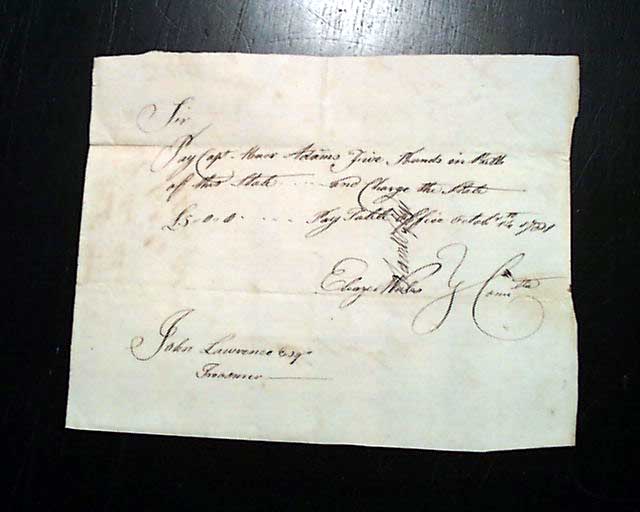 Sir
Pay Capt. Adams Five Pounds in Bills
of this State and Charge the State
£5.0.0 Pay Table Office Octobr 1781
Eleazr Wales } Comtte
John Lawrence Esqr
Treasurer